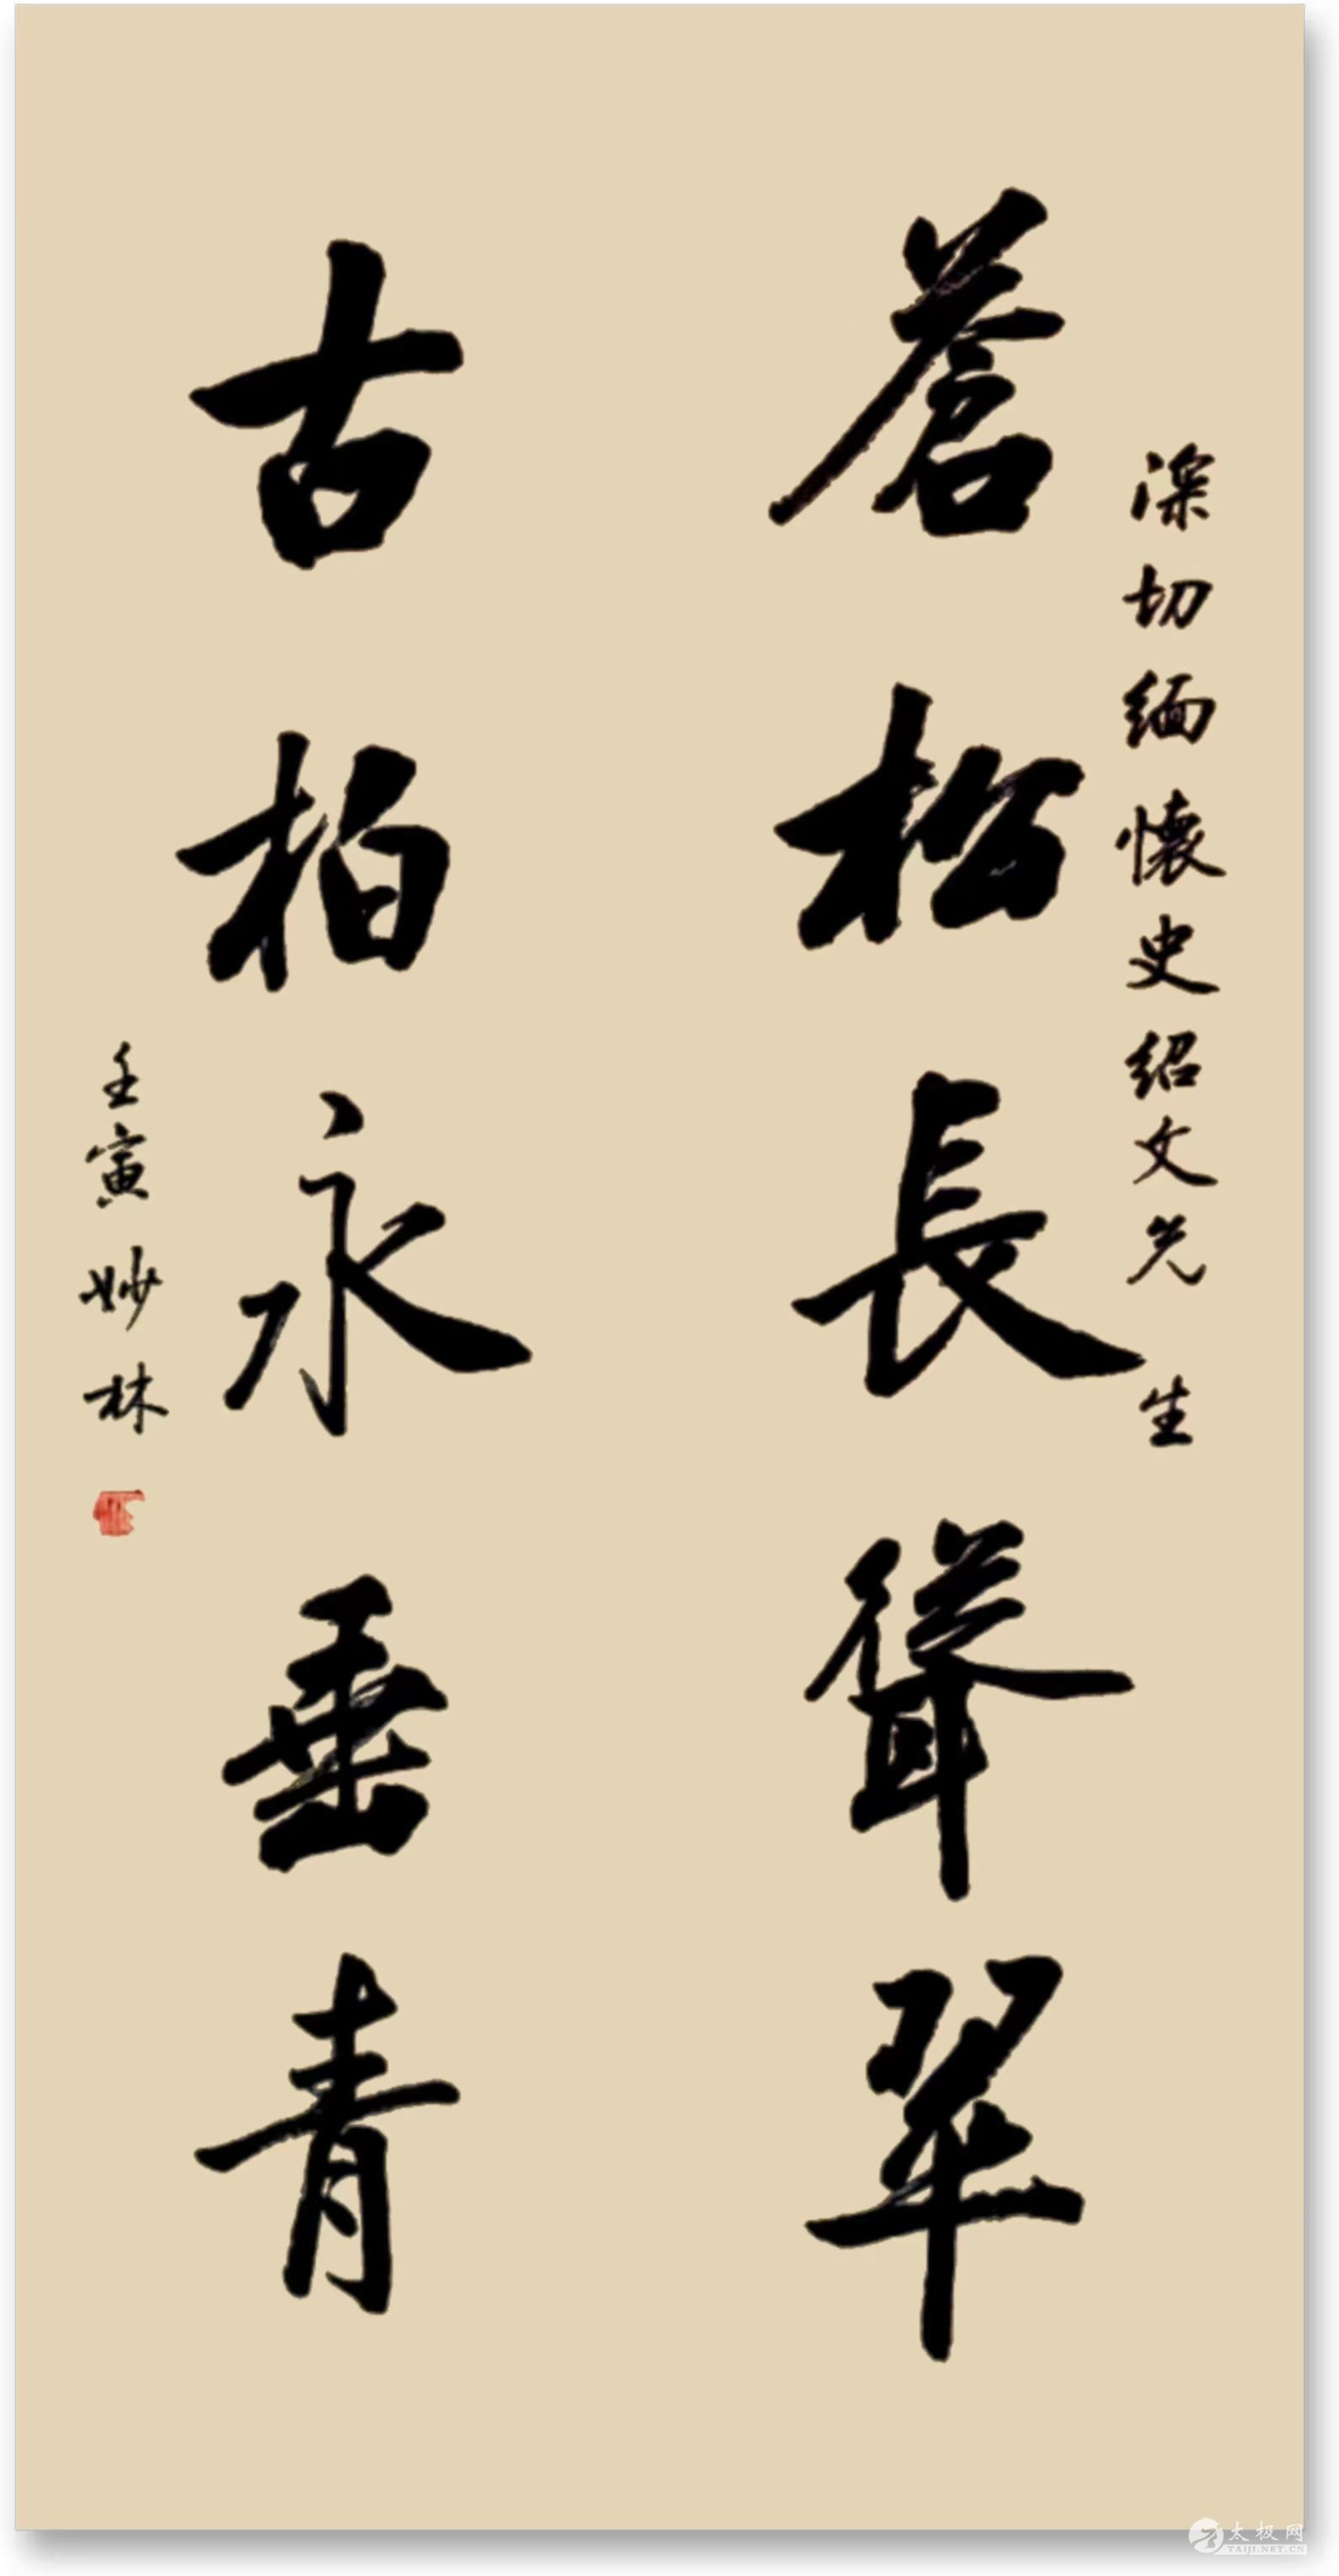 深切缅懷史绍文先生
蒼松長聳翠
古柏永垂青
壬寅妙林
太极网
TAIJI.NET.CN